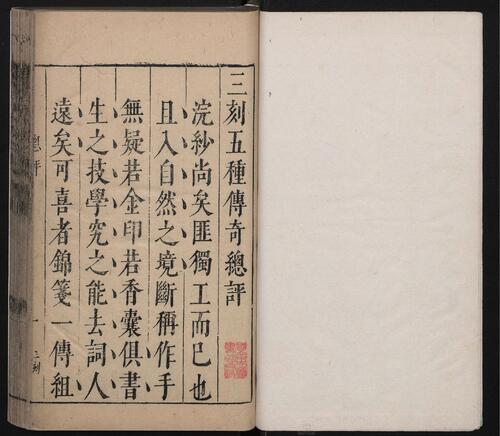 三刻五種傳奇總評
浣紗尚矣匪獨工而已也
且入自然之境斷稱作手
無疑若金印若香囊俱書
生之技學究之能去詞人
遠矣可喜者錦箋一傳組
總評
一
三刻